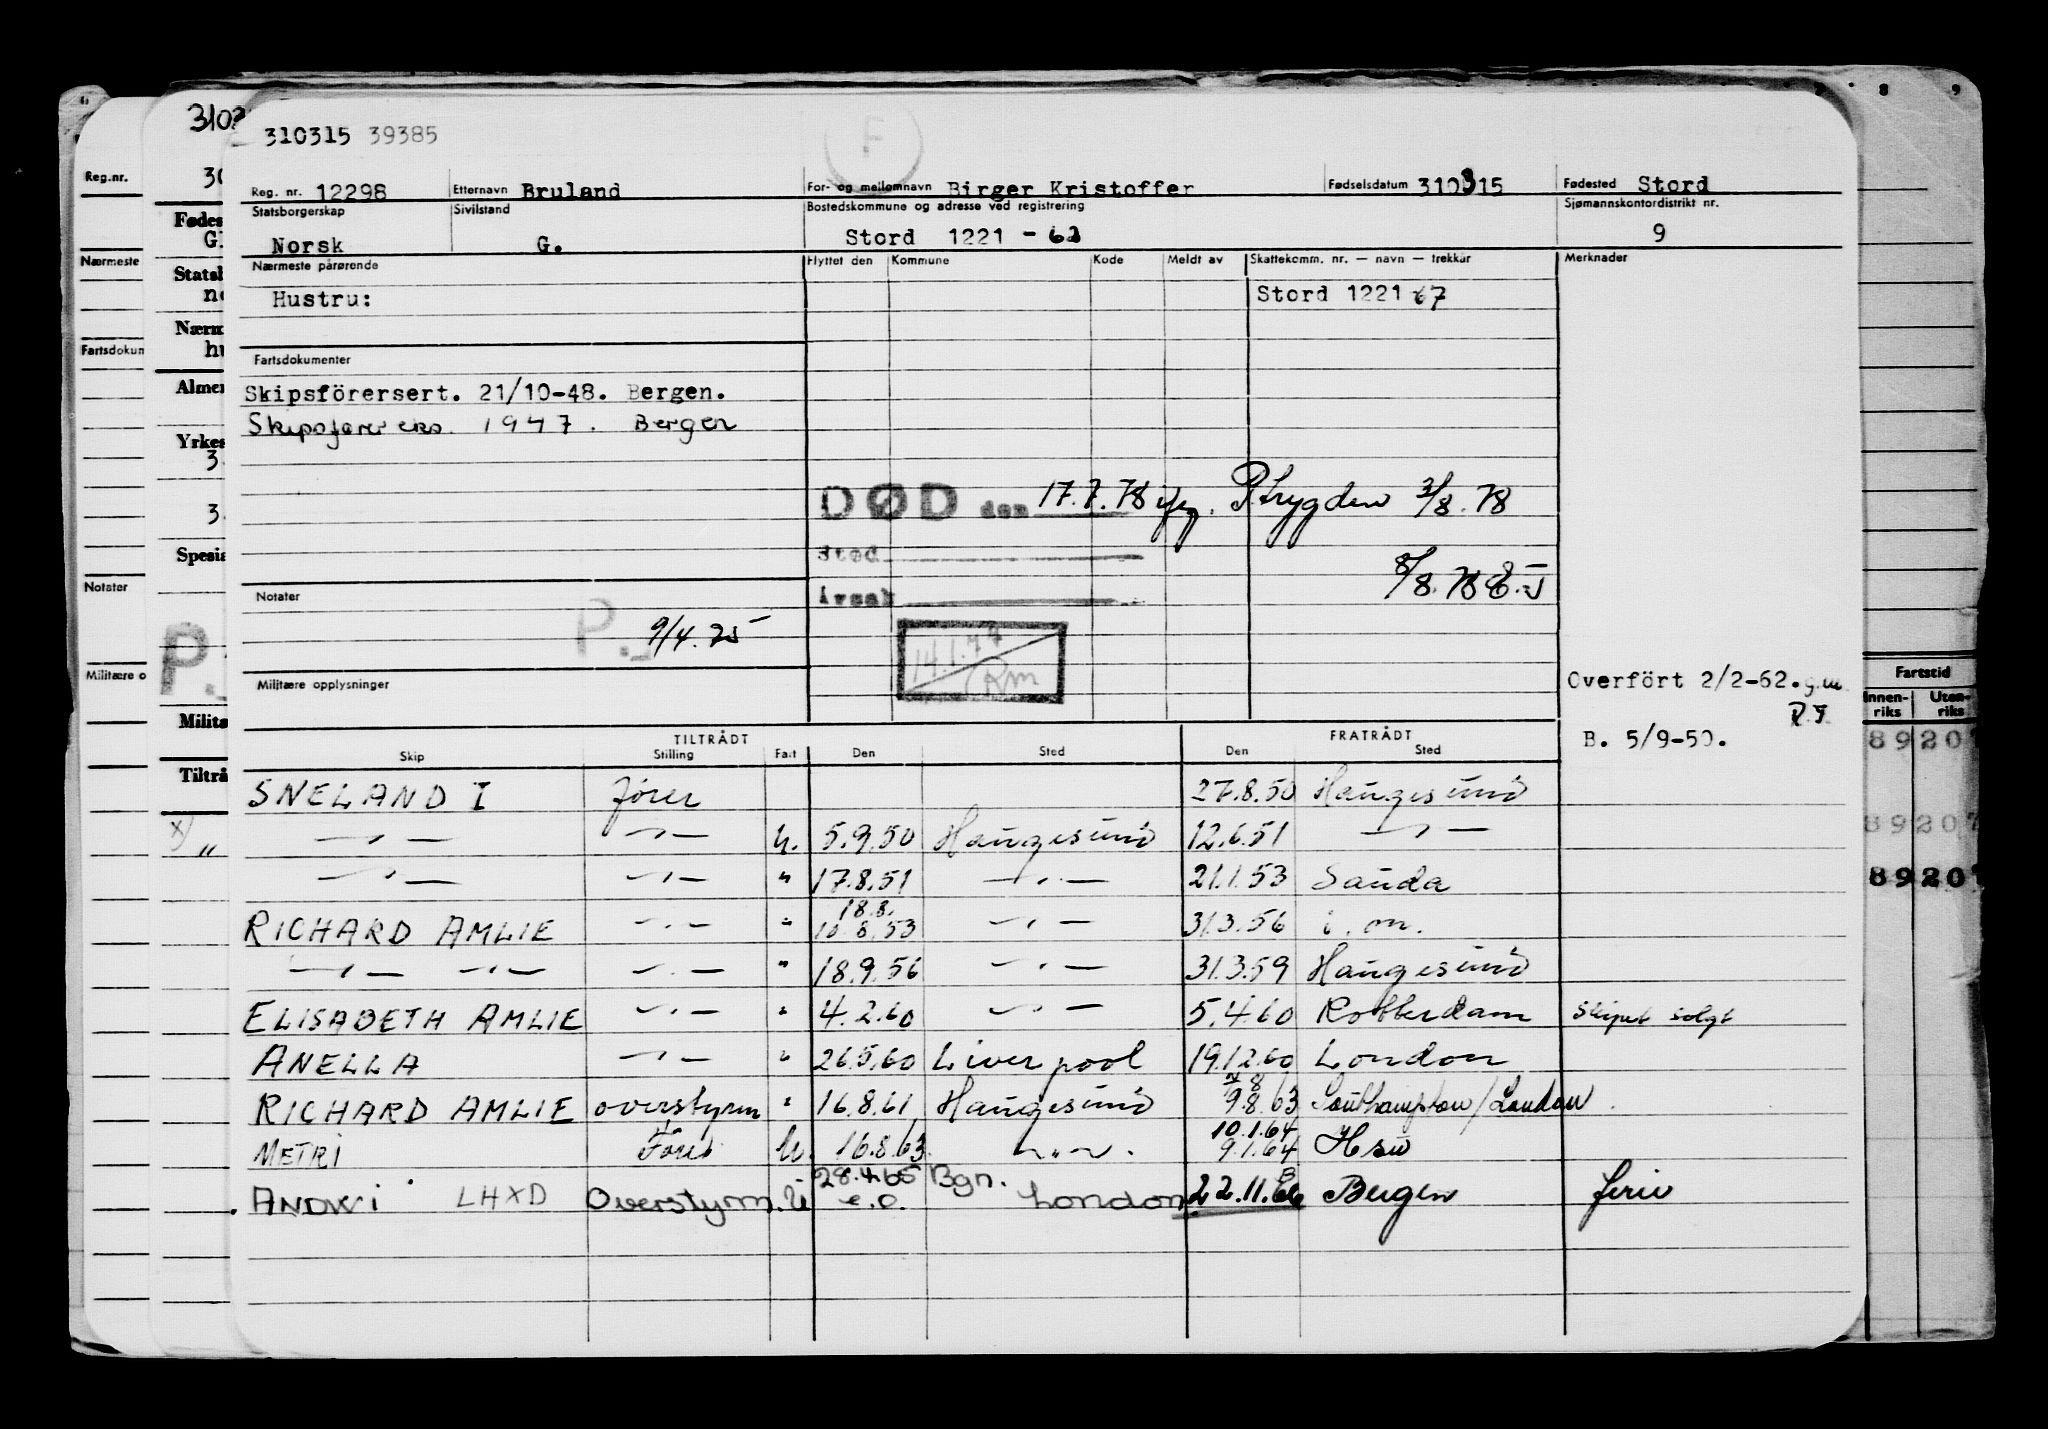 310315 39385
F
Reg. nr. 12298 Etternavn Bruland For- og mellomnavn Birger Kristoffer Fødselsdatum 310315 Fødested Stord
Statsborgerskap Sivilstand Bostedskommune og adresse ved registrering Sjømannskontordistrikt nr.
Norsk G. Stord 1221 - 62 9
Nærmeste pårørende Flyttet den Kommune Kode Meldt av Skattekomm. nr. — navn — trekkår Merknader
Hustru: Stord 1221 67
Fartsdokumenter
Skipsförersert. 21/10-48. Bergen.
Skipsfører eks. 1947. Bergen
DØD den 17.7.78 ifg. P.trygden 3/8.78
Sted
Årsak
8/8.78
Notater
P. 9/4.75
14.1.77
Rm
Militære opplysninger
Overfört 2/2-62. g.m.
B. 5/9-50.
TILTRÅDT FRATRÅDT
Skip Stilling Fart Den Sted Den Sted
SNELAND I fører 27.8.50 Haugesund
— " — — " — U. 5.9.50 Haugesund 12.6.51 — " —
— " — — " — " 17.8.51 — " — 21.1.53 Sauda
18.8.
RICHARD AMLIE — " — " 18.8.53 — " — 31.3.56 i. m.
— " — — " — — " — " 18.9.56 — " — 31.3.59 Haugesund
ELISABETH AMLIE — " — " 4.2.60 — " — 5.4.60 Rotterdam Skipet solgt
ANELLA — " — " 26.5.60 Liverpool 19.12.60 London
RICHARD AMLIE overstyrm " 16.8.61 Haugesund 9.8.63 Southampton/London
10.1.64
METRI Fører U. 16.8.63 9.1.64 Hsu
28.4.65 Bgn.
ANDWI LHXD Overstyrm. U e.o. London 22.11.66 Bergen ferie
3103
Reg.nr.
Nærmeste
Fartsdokun
Notater
Militære o
Fødes
Statsb
Nærm
Almen
Yrkes
Spesia
P.
Milita
Tiltrå
x) "
8 9
Fartstid
Innen-riks Uten-riks
89207
89207
89207